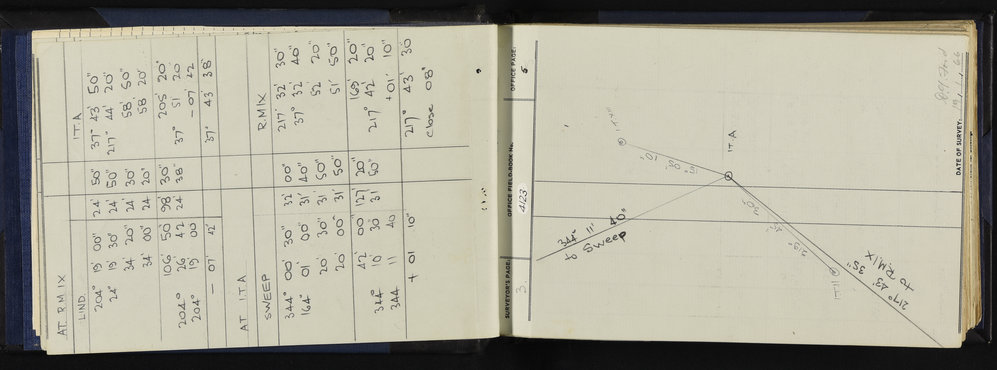 AT R.MIX
LIND. I T.A
204° 19' 00" 24' 50" 37° 43' 50"
24° 19' 30" 24' 50" 217° 44' 20"
34' 20" 24' 30" 58' 50"
34' 00" 24' 20" 58' 20'
106' 50" 98' 30" 205' 20"
204° 26 42 24' 38" 37° 51' 20
204° 19' 00 - 07' 42
- 07' 42' 37° 43' 38'
AT I.T.A
SWEEP R.MIX
344° 00' 30" 32' 00" 217° 32' 30"
164° 01' 00" 31' 40" 37° 32' 40"
20' 30" 31' 50" 52' 20"
20' 00' 31' 50" 51' 50"
42' 00' 127' 20" 169' 20"
344° 10' 30 31' 50" 217° 42' 20"
344 11 40 +01' 10"
+ 01 10" 217° 43' 30
close 08"
SURVEYOR'S PAGE. 3. OFFICE FIELD-BOOK No. 4123 OFFICE PAGE. 5
DATE OF SURVEY. 66
I T. A
344° 11' 40"
to Sweep
217° 43' 35"
to R.MIX